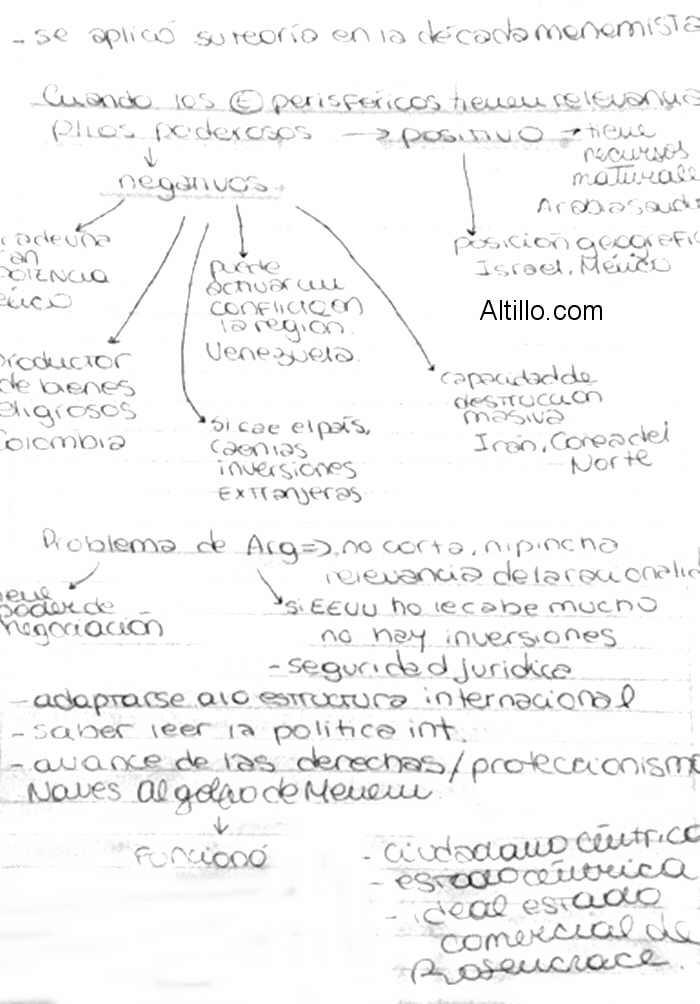 - se aplicó su teoría en la década menemista
Cuando los Ⓔ perisféricos tienen relevancia
p/los poderosos → positivo → tiene
recursos
naturale
Arabia saudi
↓
negativos
posición geografic
Israel, México
cadeuna
an
potencia
éxico
puede
activar un
conflicto en
la región.
Venezuela.
Altillo.com
productor
de bienes
eligrosos
Colombia
capacidad de
destrucción
masiva
Irán, Corea del
Norte
si cae el país,
caen las
inversiones
extranjeras
Problema de Arg ⇒ no corta, ni pincha
relevancia de la racionalid
iene
poder de
negociación
si EEUU no le cabe mucho
no hay inversiones
- seguridad jurídica
- adaptarse a lo estructura internacional
- saber leer la política int.
- avance de las derechas/proteccionismo
Naves al golfo de Menem
↓
Funcionó
- ciudadano céntrica
- estado céntrica
- ideal estado
comercial de
Rosencrace.